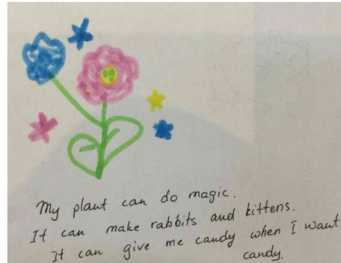 My plant can do magic.
It can make rabbits and kittens.
It can give me candy when I want
candy.